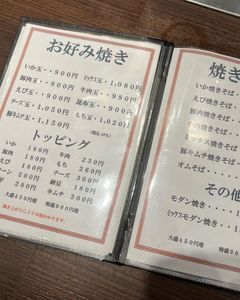 お好み焼き
いか玉‥900円 ミックス玉‥1,080円
豚肉玉‥900円 牛肉玉‥980円
えび玉‥900円 昆布玉‥900円
チーズ玉・1,050円 もち玉・1,020円
豚キムチ玉・1,150円 (税込10%)
トッピング
いか 180円 牛肉 230円
豚肉 180円 もち 260円
えび 180円 チーズ 300円
コーン 200円 納豆 180円
ネギ 200円 キムチ 300円
大盛450円増 特盛900円増
焼き上がりに20分程かかります。
焼き
いか焼きそば
えび焼きそば
豚肉焼きそば
牛肉焼きそば
ミックス焼きそば
豚キムチ焼きそば
オムそば
その他
モダン焼き
ミックスモダン焼き
大盛450円増 特盛